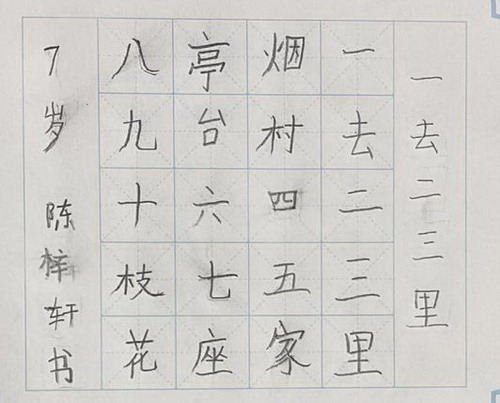 一去二三里
一去二三里
烟村四五家
亭台六七座
八九十枝花
7岁 陈梓轩书